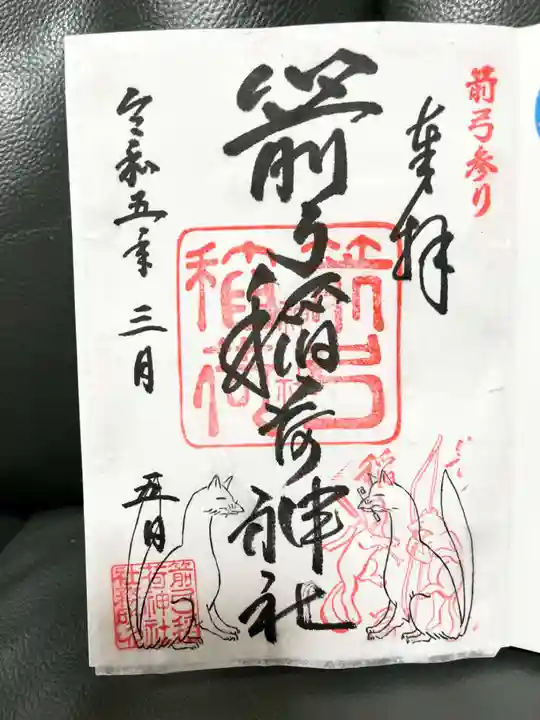 箭弓参り
奉拝
箭弓稲荷神社
箭弓稲荷
令和五年三月
五日
箭弓稲
荷神社